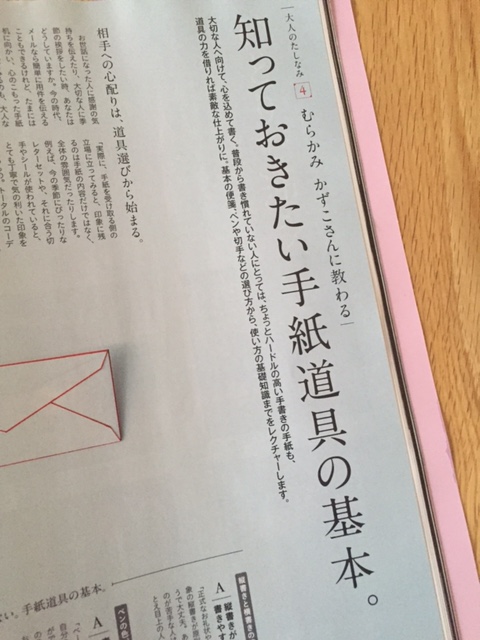 大人のたしなみ 4 むらかみ かずこさんに教わる
知っておきたい手紙道具の基本。
大切な人へ向けて、心を込めて書く。普段から書き慣れていない人にとっては、ちょっとハードルの高い手書きの手紙も、
道具の力を借りれば素敵な仕上がりに。基本の便箋、ペンや切手などの選び方から、使い方の基礎知識までをレクチャーします。
相手への心配りは、道具選びから始まる。
お世話になった人に感謝の気
持ちを伝えたり、大切な人に季
節の挨拶をしたい時、あなたは
どうしていますか。今の時代、
メールなら簡単に用件を伝える
こともできるけれど、たまには
机に向かい、心のこもった手紙
「実際に、手紙を受け取る側の
立場に立ってみると、印象に残
るのは手紙の内容だけではなく、
全体の雰囲気だったりします。
例えば、今の季節にぴったりな
レターセットや、それに合う切
手やシールが使われていると、
とても丁寧で気の利いた印象を
トータルのコーデ
手紙道具の基本。
縦書きと横書きの
A 縦書きが
書きやす
「正式なお礼状や
うで大丈夫。あ
象の縦書きが原
のが苦手な人
とえ目上の人
ペンの色
A